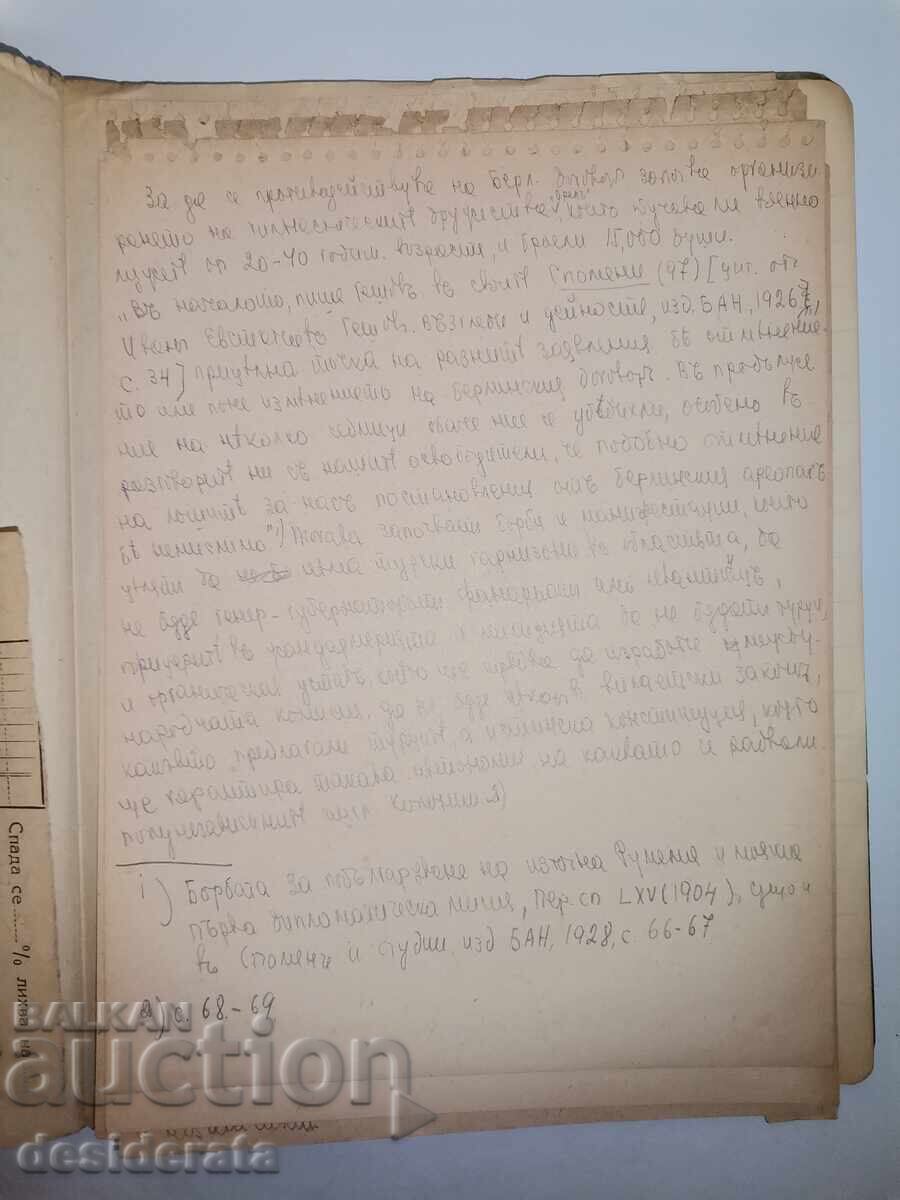 За да се противодействува на Берл. договоръ започва организи
рането на гимнастическитѣ дружества, които обучавали военно
мѫжетѣ от 20-40 годишн. възрасть, и броели 15,000 души.
„Въ началото, пише Гешовъ въ своитѣ Спомени (97) [цит. отъ
Иванъ Евстратиевъ Гешовъ. Възгледи и дейность, изд. БАН, 1926 г.,
с. 34] прицѣлна точка на разнитѣ заявления бѣ отмѣнение-
то или поне изменението на Берлинския договоръ. Въ продълже
ние на нѣколко седмици обаче ние се убѣдихме, особено въ
разговоритѣ ни съ нашитѣ освободители, че подобно отмѣнение
на лошитѣ за насъ постановления отъ берлинския ареопагъ
бѣ немислимо"1) Тогава започватъ борби и манифестации, които
да нѣма турски гарнизони въ областьта, да
не бѫде генер-губернаторътъ фанариотъ или левантинецъ,
въ жандармерията и милицията да не бѫдатъ турци
и органическия уставъ, който ще трѣбва да изработи между-
народната комисия, да не бѫде нѣкой вилаетски законъ,
какъвто предлагали турцитѣ, а истинска конституция, която
ще гарантира такава автономия, на каквато се радвали
англ. колонии 2)
1) Борбата за побългаряване на източна Румелия и моята
първа дипломатическа мисия, Пер. сп LXV (1904), също и
въ Спомени и студии, изд БАН, 1928, с. 66-67
2) с. 68.-69
Спада се ...... % лихва на
BALKAN
auction
desiderata